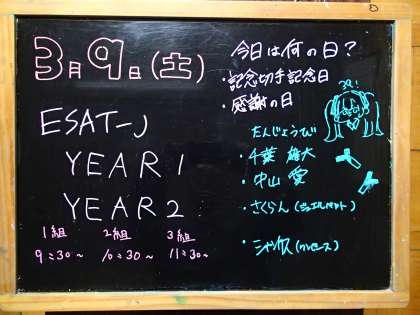 3月9日(土)
ESAT-J
YEAR1
YEAR2
1組 2組 3組
9:30~ 10:30~ 11:30~
今日は何の日?
・記念切手記念日
・感謝の日
39!
たんじょうび
・千葉 雄大
・中山 愛
・さくらん(ジュエルペット)
・シャンクス(ワンピース)